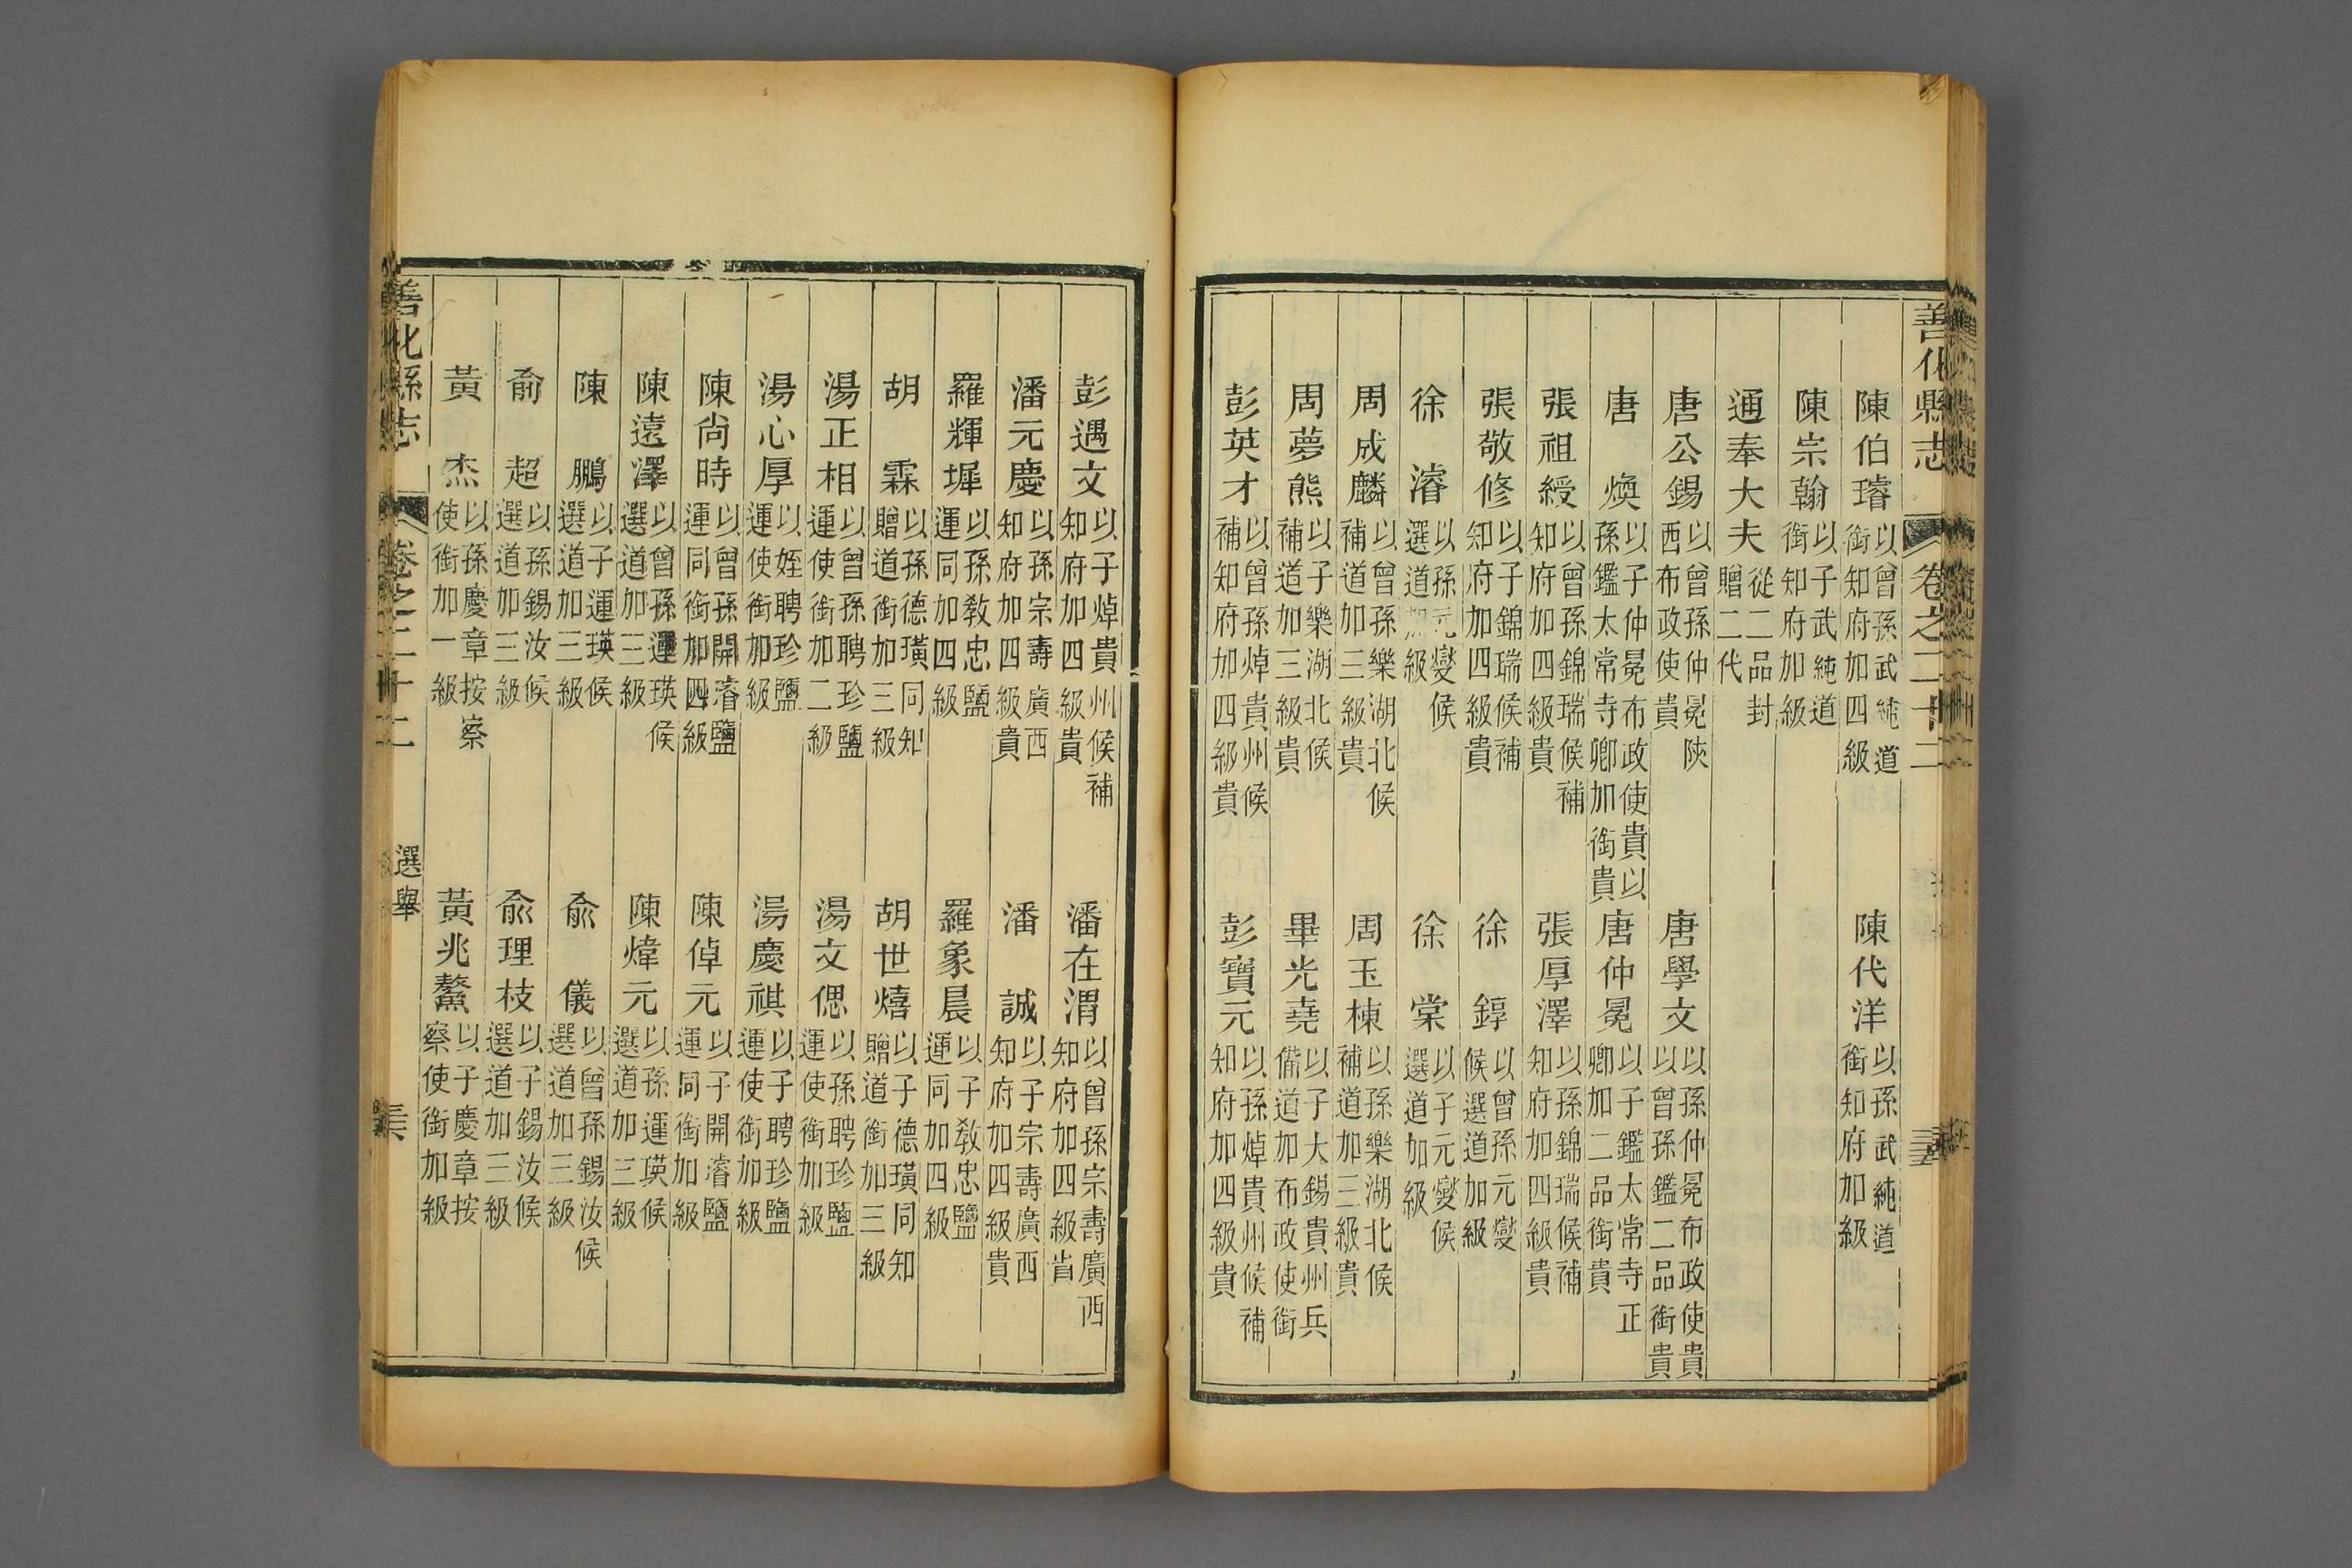 善化縣志 卷之二十二
陳伯璿 以曾孫武純道銜知府加四級 陳代洋 以孫武純道銜知府加級
陳宗翰 以子武純道銜知府加級
通奉大夫 從二品封贈二代
唐公錫 以曾孫仲冕陝西布政使貴 唐學文 以孫仲冕布政使貴以曾孫鑑二品銜貴
唐煥 以子仲冕布政使貴以孫鑑太常寺卿加銜貴 唐仲冕 以子鑑太常寺正卿加二品銜貴
張祖綬 以曾孫錦瑞候補知府加四級貴 張厚澤 以孫錦瑞候補知府加四級貴
張敬修 以子錦瑞候補知府加四級貴 徐錞 以曾孫元燮候選道加級
徐濬 以孫元燮候選道加級 徐棠 以子元燮候選道加級
周成麟 以曾孫樂湖北候補道加三級貴 周玉棟 以孫樂湖北候補道加三級貴
周夢熊 以子樂湖北候補道加三級貴 畢光堯 以子大錫貴州兵備道加布政使銜
彭英才 以曾孫焯貴州候補知府加四級貴 彭寶元 以孫焯貴州候補知府加四級貴
彭遇文 以子焯貴州候補知府加四級貴 潘在渭 以曾孫宗壽廣西知府加四級貴
潘元慶 以孫宗壽廣西知府加四級貴 潘誠 以子宗壽廣西知府加四級貴
羅輝墀 以孫敎忠鹽運同加四級 羅象晨 以子敎忠鹽運同加四級
胡霖 以孫德璜同知贈道銜加三級 胡世熺 以子德璜同知贈道銜加三級
湯正相 以曾孫聘珍鹽運使銜加二級 湯文偲 以孫聘珍鹽運使銜加級
湯心厚 以姪聘珍鹽運使銜加級 湯慶祺 以子聘珍鹽運使銜加級
陳尙時 以曾孫開濬鹽運同銜加四級 陳倬元 以子開濬鹽運同銜加級
陳遠澤 以曾孫運瑛候選道加三級 陳煒元 以孫運瑛候選道加三級
陳鵬 以子運瑛候選道加三級 兪儀 以曾孫錫汝候選道加三級
兪超 以孫錫汝候選道加三級 兪理枝 以子錫汝候選道加三級
黃杰 以孫慶章按察使銜加一級 黃兆鰲 以子慶章按察使銜加級
善化縣志 卷之二十二 選舉